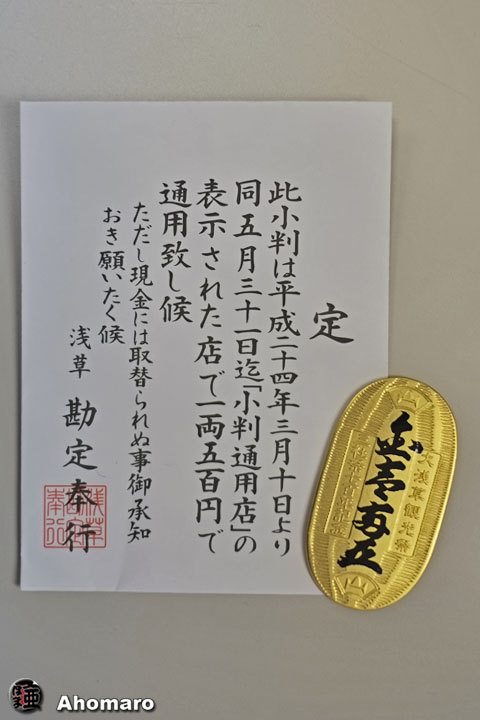 定
此小判は平成二十四年三月十日より
同五月三十一日迄「小判通用店」の
表示された店で一両五百円で
通用致し候
ただし現金には取替られぬ事御承知
おき願いたく候
浅草 勘定奉行
金壱両也
大浅草観光祭
Ahomaro